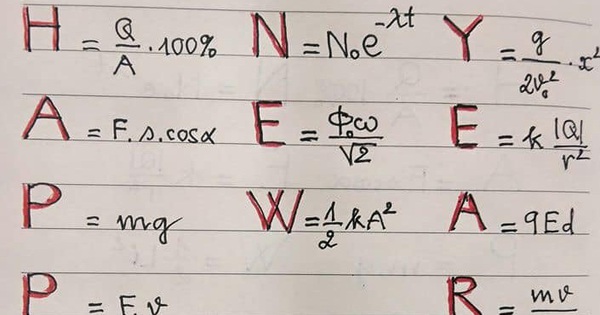 H = Q/A · 100% N = N₀e^-λt Y = g/2v₀² · x²
A = F.s.cosα E = Φ₀ω/√2 E = k |Q|/r²
P = mg W = 1/2 kA² A = qEd
P = F v R = mv